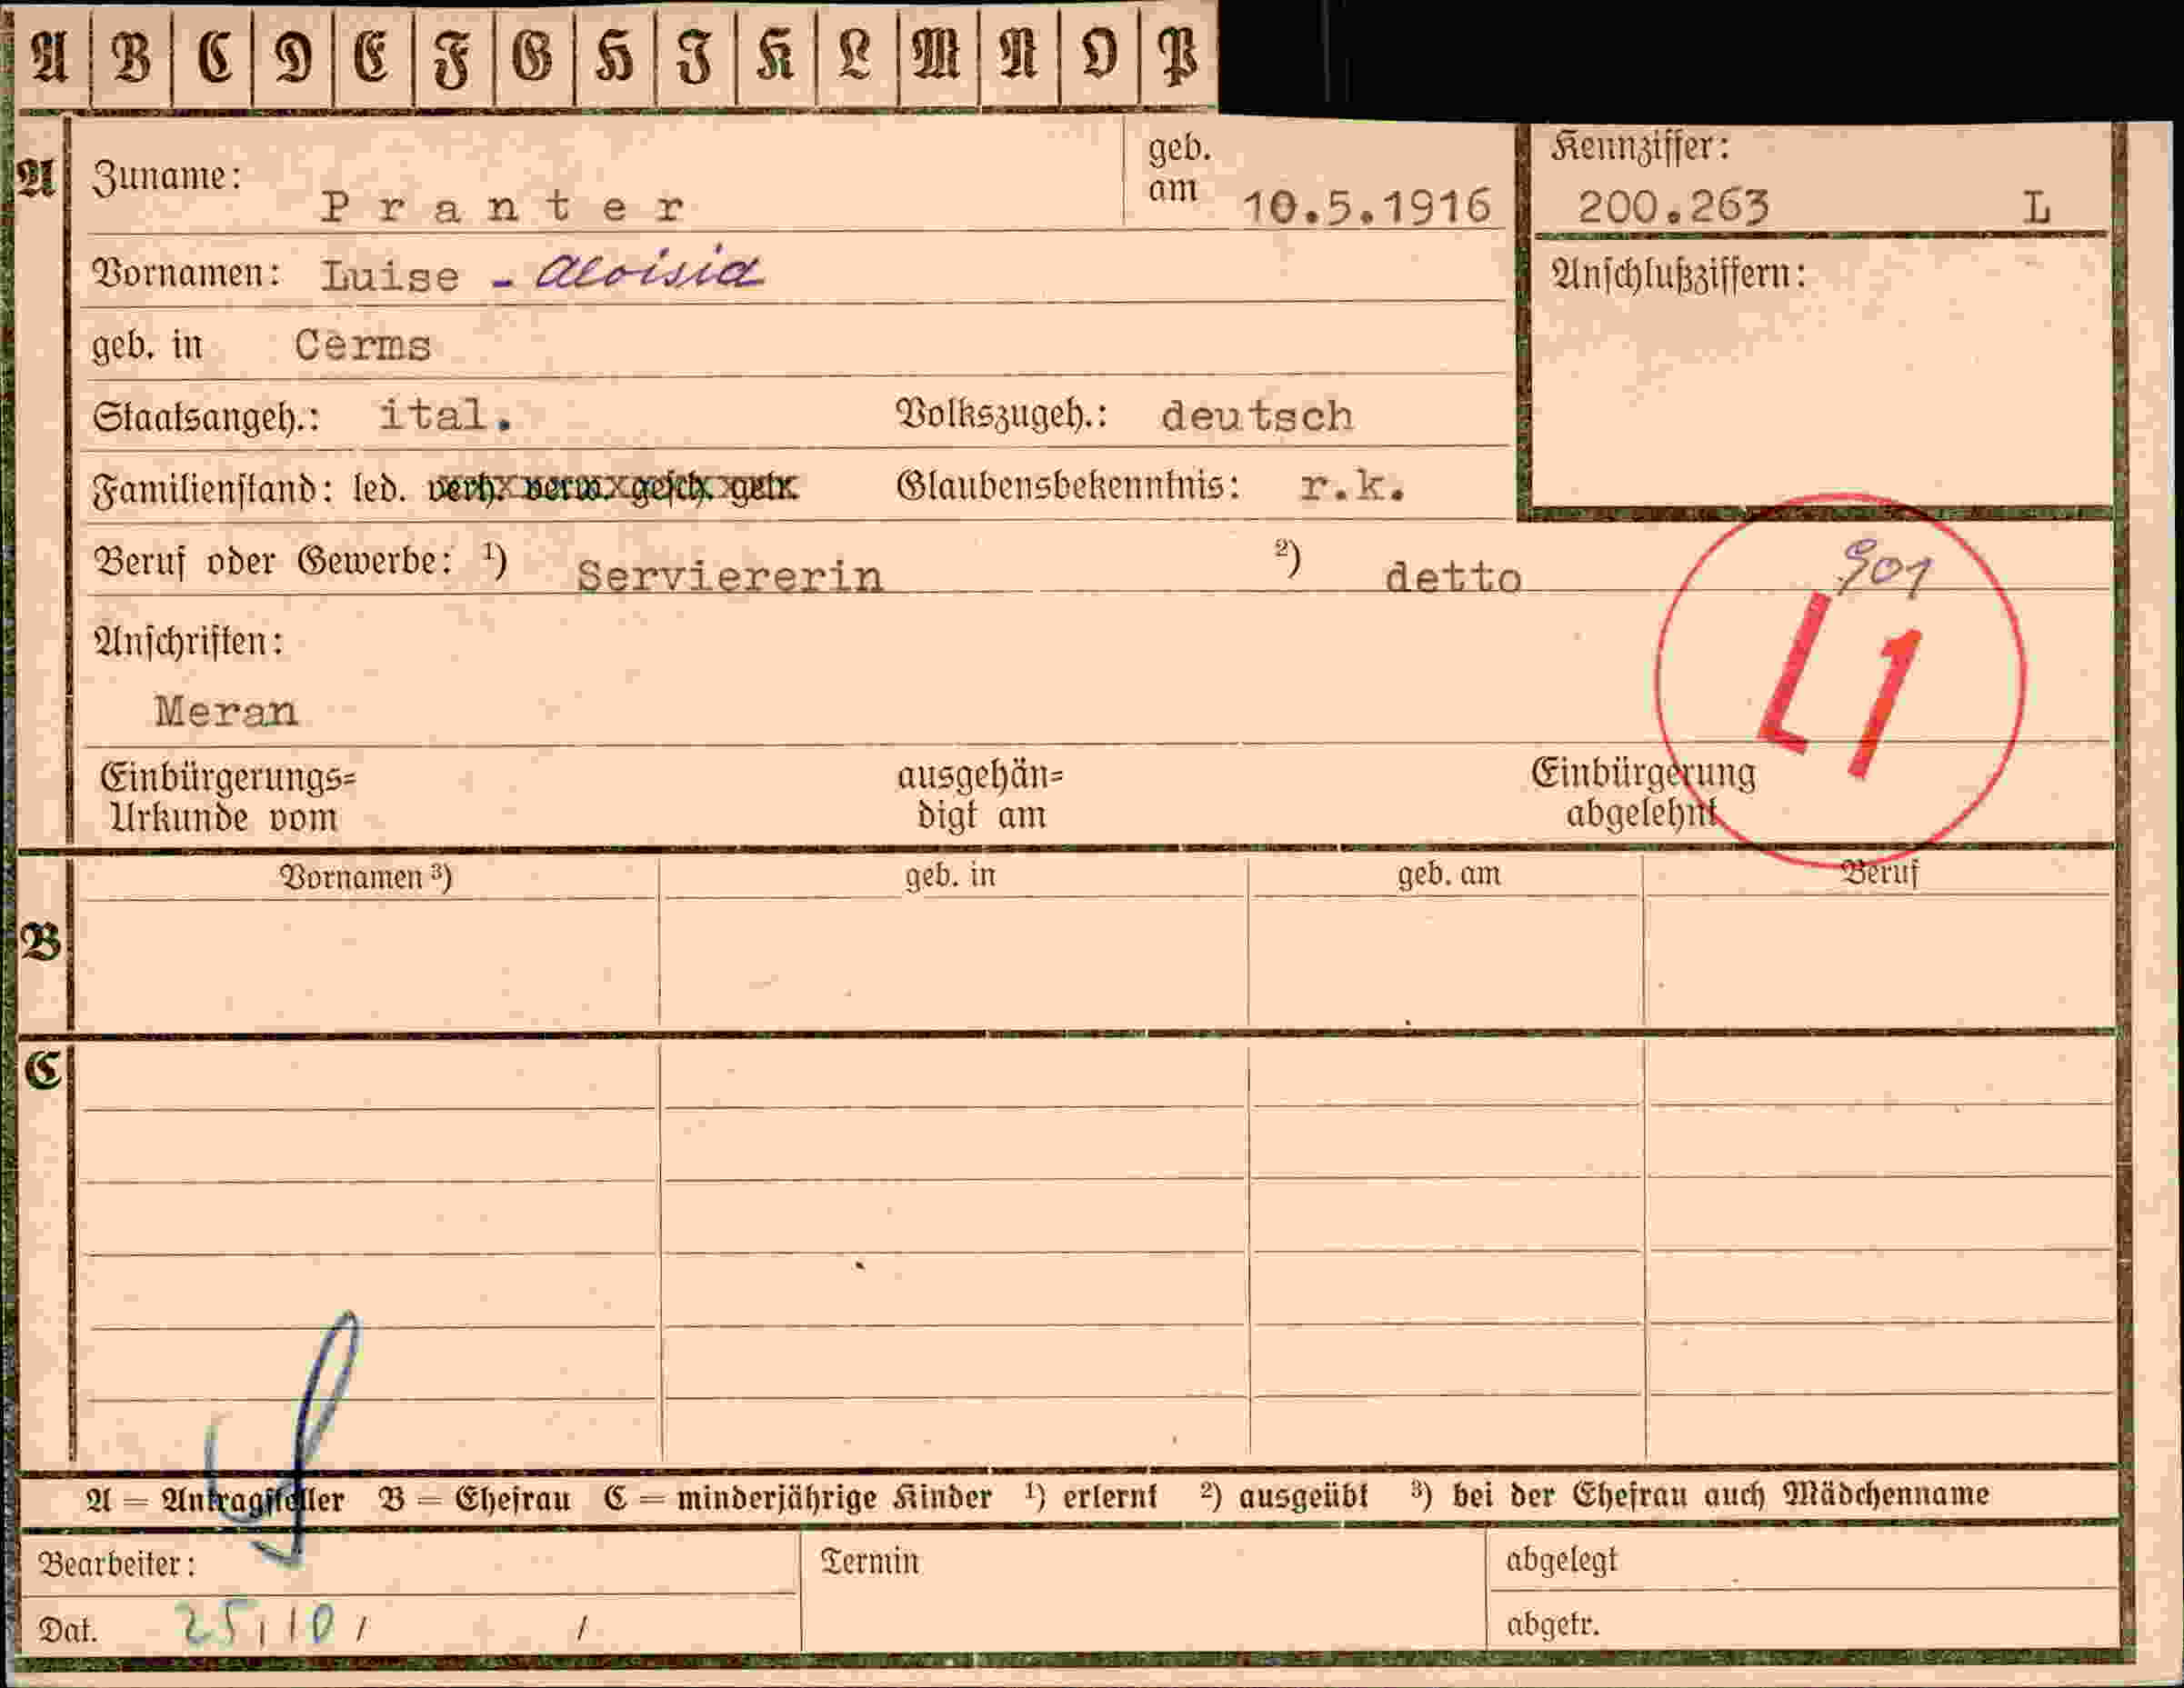 A B C D E F G H I K L M N O P
A Zuname: Pranter geb. am 10.5.1916 Kennziffer: 200.263 L
Vornamen: Luise - Aloisia Anschlußziffern:
geb. in Cerms
Staatsangeh.: ital. Volkszugeh.: deutsch
Familienstand: led. verh. verw. gesch. getr. Glaubensbekenntnis: r.k.
Beruf oder Gewerbe: ¹) Serviererin ²) detto 901
Anschriften: L1
Meran
Einbürgerungs= ausgehän= Einbürgerung
Urkunde vom digt am abgelehnt
Vornamen ³) geb. in geb. am Beruf
B
C
A = Antragsteller B = Ehefrau C = minderjährige Kinder ¹) erlernt ²) ausgeübt ³) bei der Ehefrau auch Mädchenname
Bearbeiter: Termin abgelegt
Dat. 25/10/ / abgetr.